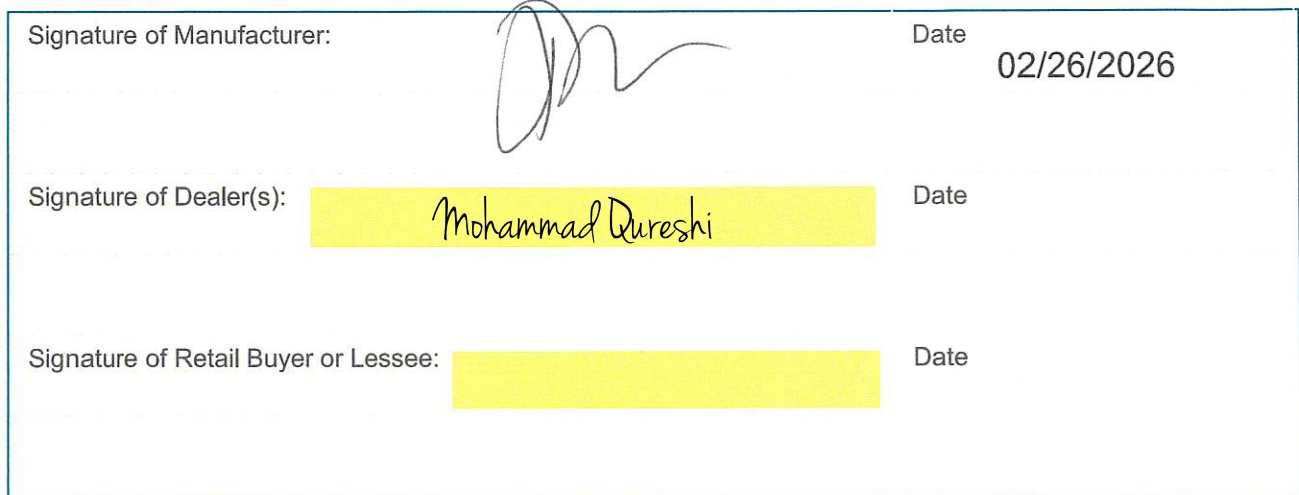 Signature of Manufacturer:
Date
02/26/2026
Signature of Dealer(s):
Mohammad Qureshi
Date
Signature of Retail Buyer or Lessee:
Date